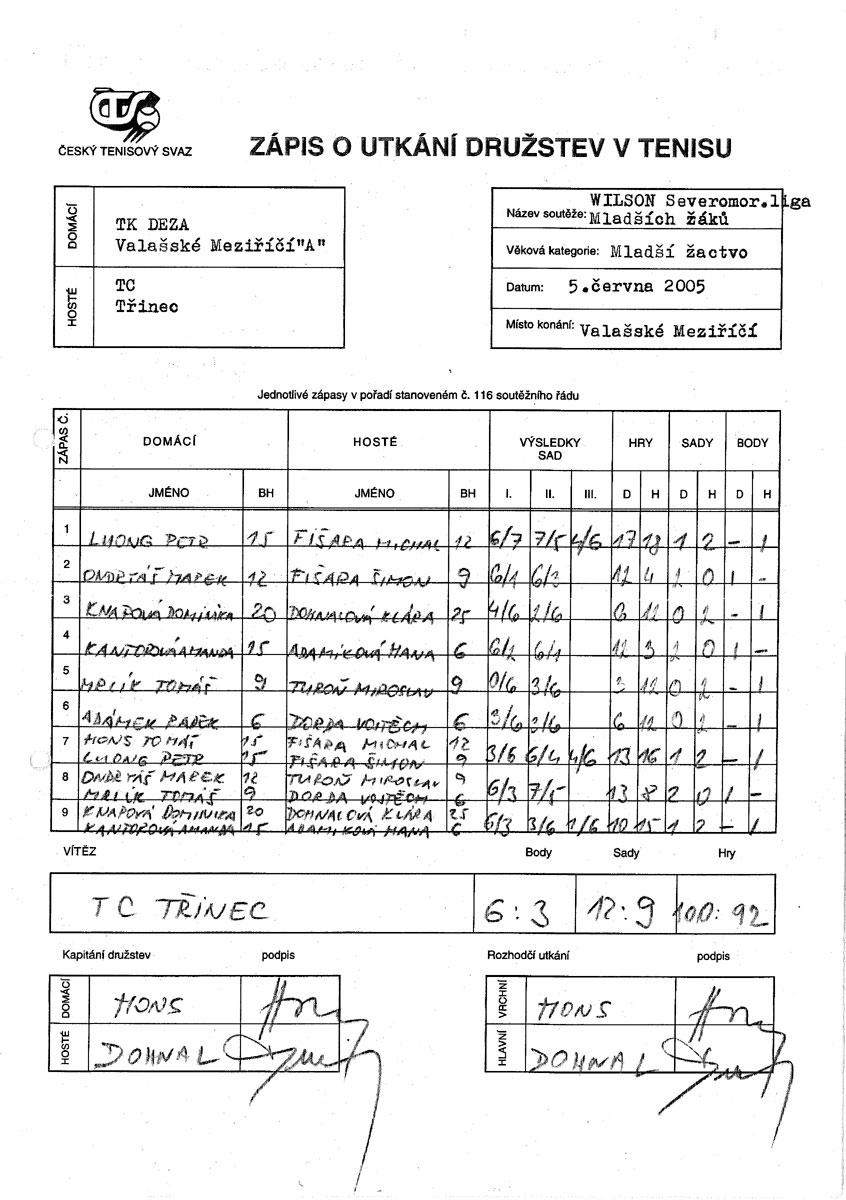 ČTS
ČESKÝ TENISOVÝ SVAZ
ZÁPIS O UTKÁNÍ DRUŽSTEV V TENISU
DOMÁCÍ
TK DEZA
Valašské Meziříčí"A"
HOSTÉ
TC
Třinec
Název soutěže: WILSON Severomor.liga
Mladších žáků
Věková kategorie: Mladší žactvo
Datum: 5.června 2005
Místo konání: Valašské Meziříčí
Jednotlivé zápasy v pořadí stanoveném č. 116 soutěžního řádu
ZÁPAS Č. DOMÁCÍ HOSTÉ VÝSLEDKY SAD HRY SADY BODY
JMÉNO BH JMÉNO BH I. II. III. D H D H D H
1 LUONG PETR 15 FIŠARA MICHAL 12 6/7 7/5 4/6 17 18 1 2 – 1
2 ONDRYÁŠ MAREK 12 FIŠARA ŠIMON 9 6/1 6/3 12 4 2 0 1 –
3 KNAPOVÁ DOMINIKA 20 DOHNALOVÁ KLÁRA 25 4/6 2/6 6 12 0 2 – 1
4 KANTOROVÁ AMANDA 15 ADAMIKOVÁ HANA 6 6/2 6/1 12 3 2 0 1 –
5 MRLÍK TOMÁŠ 9 TUROŇ MIROSLAV 9 0/6 3/6 3 12 0 2 – 1
6 ADÁMEK RADEK 6 DORDA VOJTĚCH 6 3/6 3/6 6 12 0 2 – 1
7 HONS TOMÁŠ 15 FIŠARA MICHAL 12
LUONG PETR 15 FIŠARA ŠIMON 9 3/6 6/4 4/6 13 16 1 2 – 1
8 ONDRYÁŠ MAREK 12 TUROŇ MIROSLAV 9
MRLÍK TOMÁŠ 9 DORDA VOJTĚCH 6 6/3 7/5 13 8 2 0 1 –
9 KNAPOVÁ DOMINIKA 20 DOHNALOVÁ KLÁRA 25
KANTOROVÁ AMANDA 15 ADAMIKOVÁ HANA 6 6/3 3/6 1/6 10 15 1 2 – 1
VÍTĚZ Body Sady Hry
TC TŘINEC 6:3 12:9 100:92
Kapitáni družstev podpis
DOMÁCÍ HONS
HOSTÉ DOHNAL
Rozhodčí utkání podpis
VRCHNÍ HONS
HLAVNÍ DOHNAL